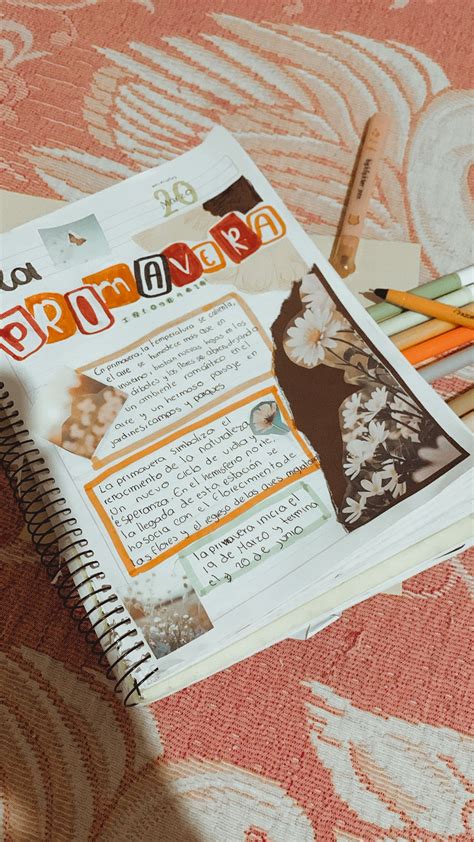 20
la
PRIMAVERA
En primavera, la temperatura se calienta,
el aire se humedece más que en
invierno, brotan nuevas hojas a los
árboles y la flores se abren, dejando
un ambiente romántico en el
aire y un hermoso paisaje en
jardines, campos y parques
La primavera simboliza el
renacimiento de la naturaleza
un nuevo ciclo de vida y
esperanza. En el hemisferio norte,
la llegada de esta estación se
hasocia con el florecimiento de
las flores y el regreso de las aves
la primavera inicia el
19 de Marzo y termina
el 20 de junio